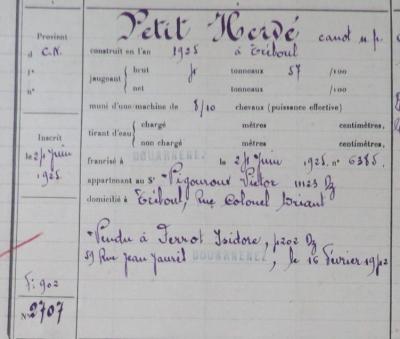 Petit Hervé canot n.p.
Provient
d C.N.
fo
no
construit en l'an 1925 à Tréboul
jaugeant
brut tonneaux 57 /100
net tonneaux /100
muni d'une machine de 8/10 chevaux (puissance effective)
tirant d'eau
chargé mètres centimètres.
non chargé mètres centimètres.
Inscrit
le 24 Juin
1925
francisé à DOUARNENEZ le 24 Juin 1925, no 6385.
appartenant au Sr Pigouroux Victor 11123 Dz
domicilié à Tréboul, Rue Colonel Briant
Vendu à Ferrot Isidore, p202 Dz
59 Rue Jean Jaurès DOUARNENEZ, le 16 Février 1942
Fo: 902
No 2707